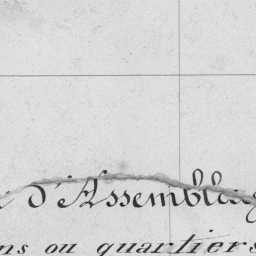 d'Assemblag
ns ou quartiers